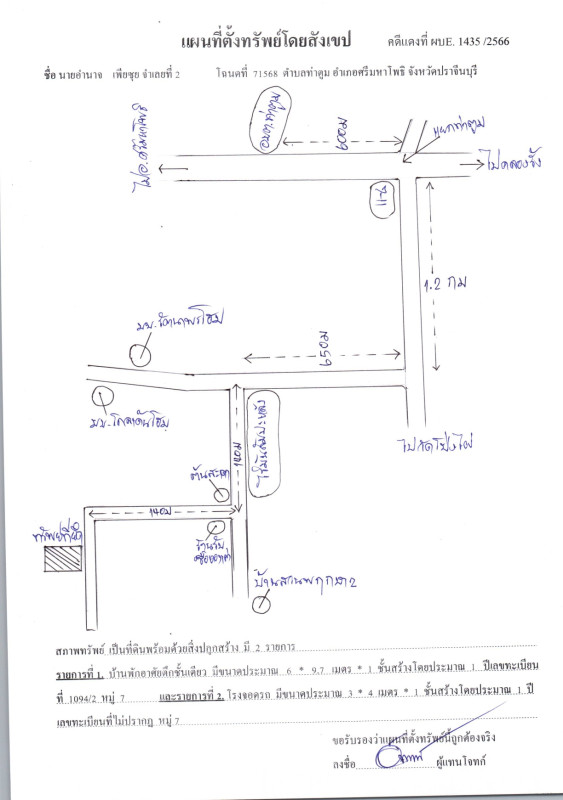 แผนที่ตั้งทรัพย์โดยสังเขป คดีแดงที่ ผบE. 1435 /2566
ชื่อ นายอำนาจ เพียซุย จำเลยที่ 2 โฉนดที่ 71568 ตำบลท่าตูม อำเภอศรีมหาโพธิ จังหวัดปราจีนบุรี
ไป อ.ศรีมหาโพธิ
อบต.ท่าตูม
600ม
แยกท่าตูม
ไปคลองรั้ง
7-11
1.2 กม
มบ.รัตนาพรโฮม
650ม
มบ.โกลเด้นโฮม
ไร่มันสำปะหลัง
140ม
ไปวัดโป่งไผ่
ต้นสะเดา
140ม
ทรัพย์ที่ยึด
ร้านรับ
ซื้อของเก่า
บ้านสวนพฤกษา2
สภาพทรัพย์ เป็นที่ดินพร้อมด้วยสิ่งปลูกสร้าง มี 2 รายการ
รายการที่ 1. บ้านพักอาศัยตึกชั้นเดียว มีขนาดประมาณ 6 * 9.7 เมตร * 1 ชั้นสร้างโดยประมาณ 1 ปีเลขทะเบียน
ที่ 1094/2 หมู่ 7 และรายการที่ 2. โรงจอดรถ มีขนาดประมาณ 3 * 4 เมตร * 1 ชั้นสร้างโดยประมาณ 1 ปี
เลขทะเบียนที่ไม่ปรากฏ หมู่ 7
ขอรับรองว่าแผนที่ตั้งทรัพย์นี้ถูกต้องจริง
ลงชื่อ ผู้แทนโจทก์